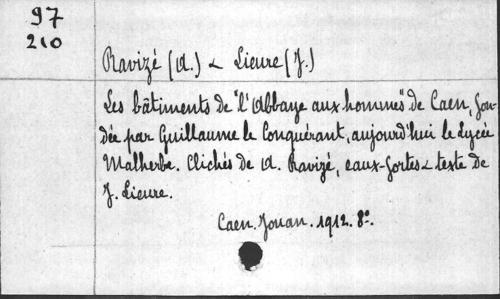 97
210
Ravizé (A.) & Lieure (J.)
Les bâtiments de "l'Abbaye aux hommes" de Caen, fon
dée par Guillaume le Conquérant, aujourd'hui le Lycée
Malherbe. Clichés de A. Ravizé, eaux-fortes & texte de
J. Lieure.
Caen. Jouan. 1912. 8°.